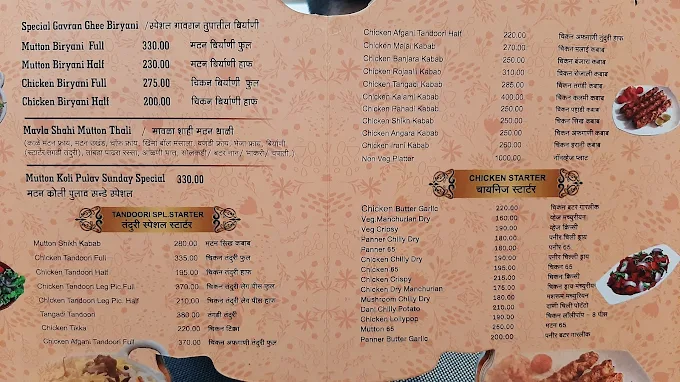 Special Gavran Ghee Biryani / स्पेशल गावरान तुपातील बिर्याणी
Mutton Biryani Full 330.00 मटन बिर्याणी फुल
Mutton Biryani Half 230.00 मटन बिर्याणी हाफ
Chicken Biryani Full 275.00 चिकन बिर्याणी फुल
Chicken Biryani Half 200.00 चिकन बिर्याणी हाफ
Mavla Shahi Mutton Thali / मावळा शाही मटन थाळी
Mutton Koli Pulav Sunday Special 330.00
मटन कोली पुलाव सन्डे स्पेशल
TANDOORI SPL.STARTER
तंदुरी स्पेशल स्टार्टर
Mutton Shikh Kabab 280.00 मटन सिख कबाब
Chicken Tandoori Full 335.00 चिकन तंदुरी फुल
Chicken Tandoori Half 195.00 चिकन तंदुरी हाफ
Chicken Tandoori Leg Pic.Full 370.00 चिकन तंदुरी लेग पीस फुल
Chicken Tandoori Leg Pic. Half 210.00 चिकन तंदुरी लेग पीस हाफ
Tangadi Tandoori 380.00 तंगडी तंदुरी
Chicken Tikka 220.00 चिकन टिक्का
Chicken Afgani Tandoori Full 370.00 चिकन अफगाणी तंदुरी फुल
Chicken Afgani Tandoori Half 220.00 चिकन अफगाणी तंदुरी हाफ
Chicken Malai Kabab 270.00 चिकन मलाई कबाब
Chicken Banjara Kabab 250.00 चिकन बंजारा कबाब
Chicken Rojaali Kabab 310.00 चिकन रोजाली कबाब
Chicken Tangadi Kabab 285.00 चिकन तंगडी कबाब
Chicken Kalami Kabab 400.00 चिकन कलमी कबाब
Chicken Pahadi Kabab 250.00 चिकन पहाडी कबाब
Chicken Shikh Kabab 250.00 चिकन सिख कबाब
Chicken Angara Kabab 250.00 चिकन अफगाणी कबाब
Chicken Irani Kabab 260.00 चिकन इरानी कबाब
Non Veg Platter 1000.00 नॉनव्हेज प्लाट
CHICKEN STARTER
चायनिज स्टार्टर
Chicken Butter Garlic 220.00 चिकन बटर गारलीक
Veg.Manchurian Dry 160.00 व्हेज मंच्युरीयन
Veg.Cripsy 190.00 व्हेज क्रिस्पी
Panner Chilly Dry 190.00 पनीर चिली ड्राय
Panner 65 180.00 पनीर 65
Chicken Chilly Dry 190.00 चिकन चिली ड्राय
Chicken 65 195.00 चिकन 65
Chicken Crispy 215.00 चिकन क्रिस्पी
Chicken Dry Manchurian 175.00
Mushroom Chilly Dry 180.00
Dani Chilly Potato 210.00
Chicken Lollypop 190.00 चिकन लॉलीपॉप - 8 पीस
Mutton 65 250.00 मटन 65
Panner Butter Garlic 200.00 पनीर बटर गारलीक